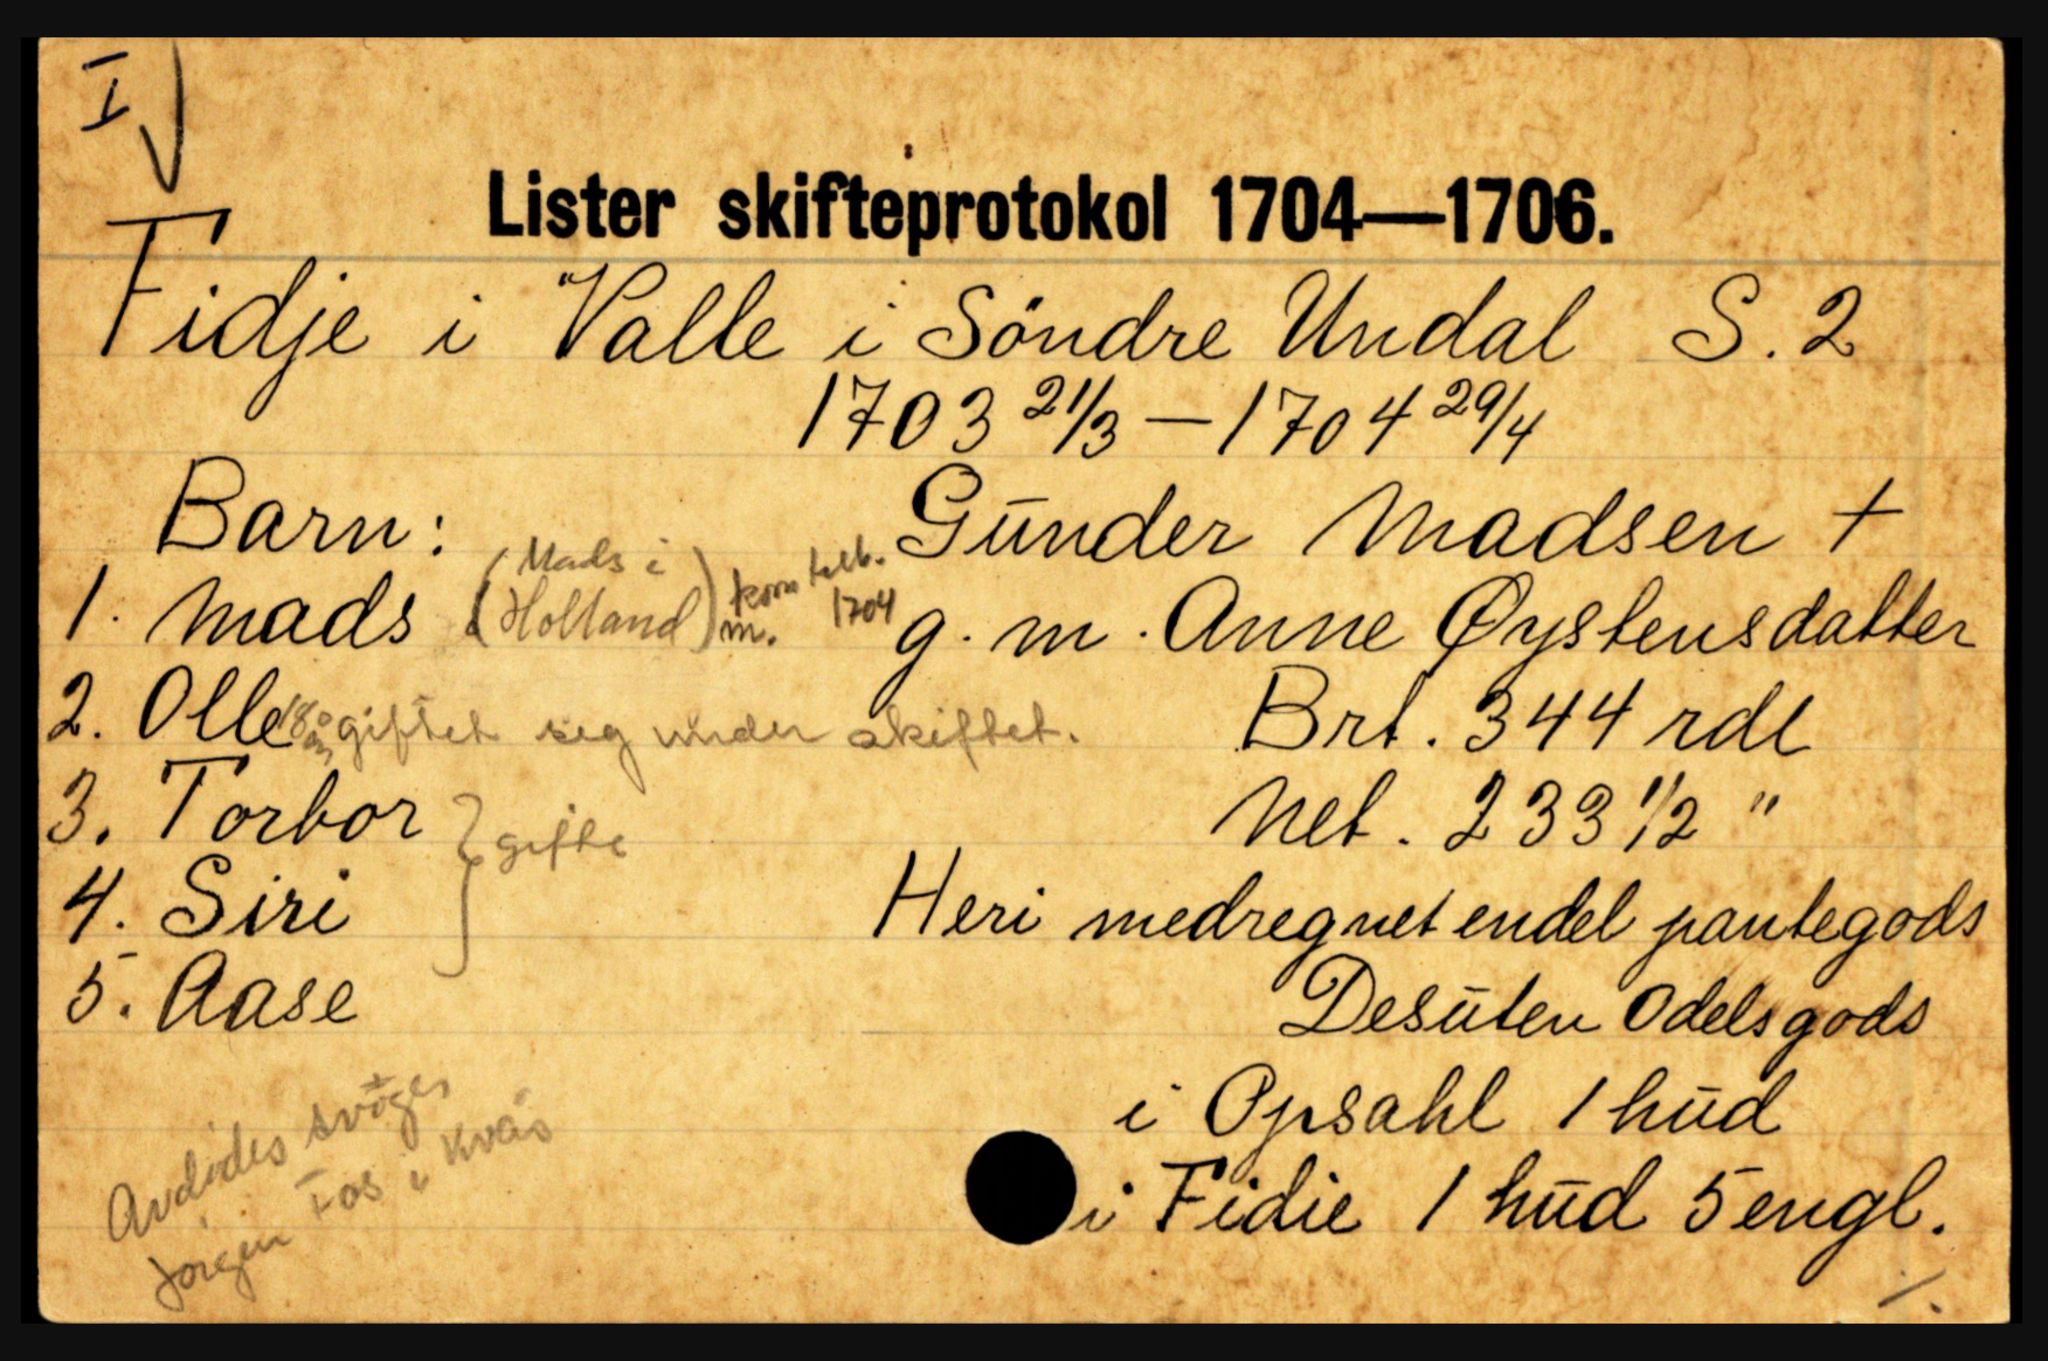 I
Lister skifteprotokol 1704—1706.
Fidje i Valle i Söndre Undal S. 2
1703 21/3 — 1704 29/4
Barn: Gŭnder Madsen +
1. Mads (Mads i Holland) kom tilb. 1704 g. m. Anne Øystensdatter
2. Olle 18 år giftet sig under skiftet. Brt. 344 rdl
3. Torbor } gifte Net. 233 1/2 "
4. Siri Heri medregnet endel pantegods
5. Aase Desŭten Odelsgods
i Opsahl 1 hŭd
i Fidie 1 hŭd 5 engl.
Avdødes svoger
Jörgen Fos i Kvås